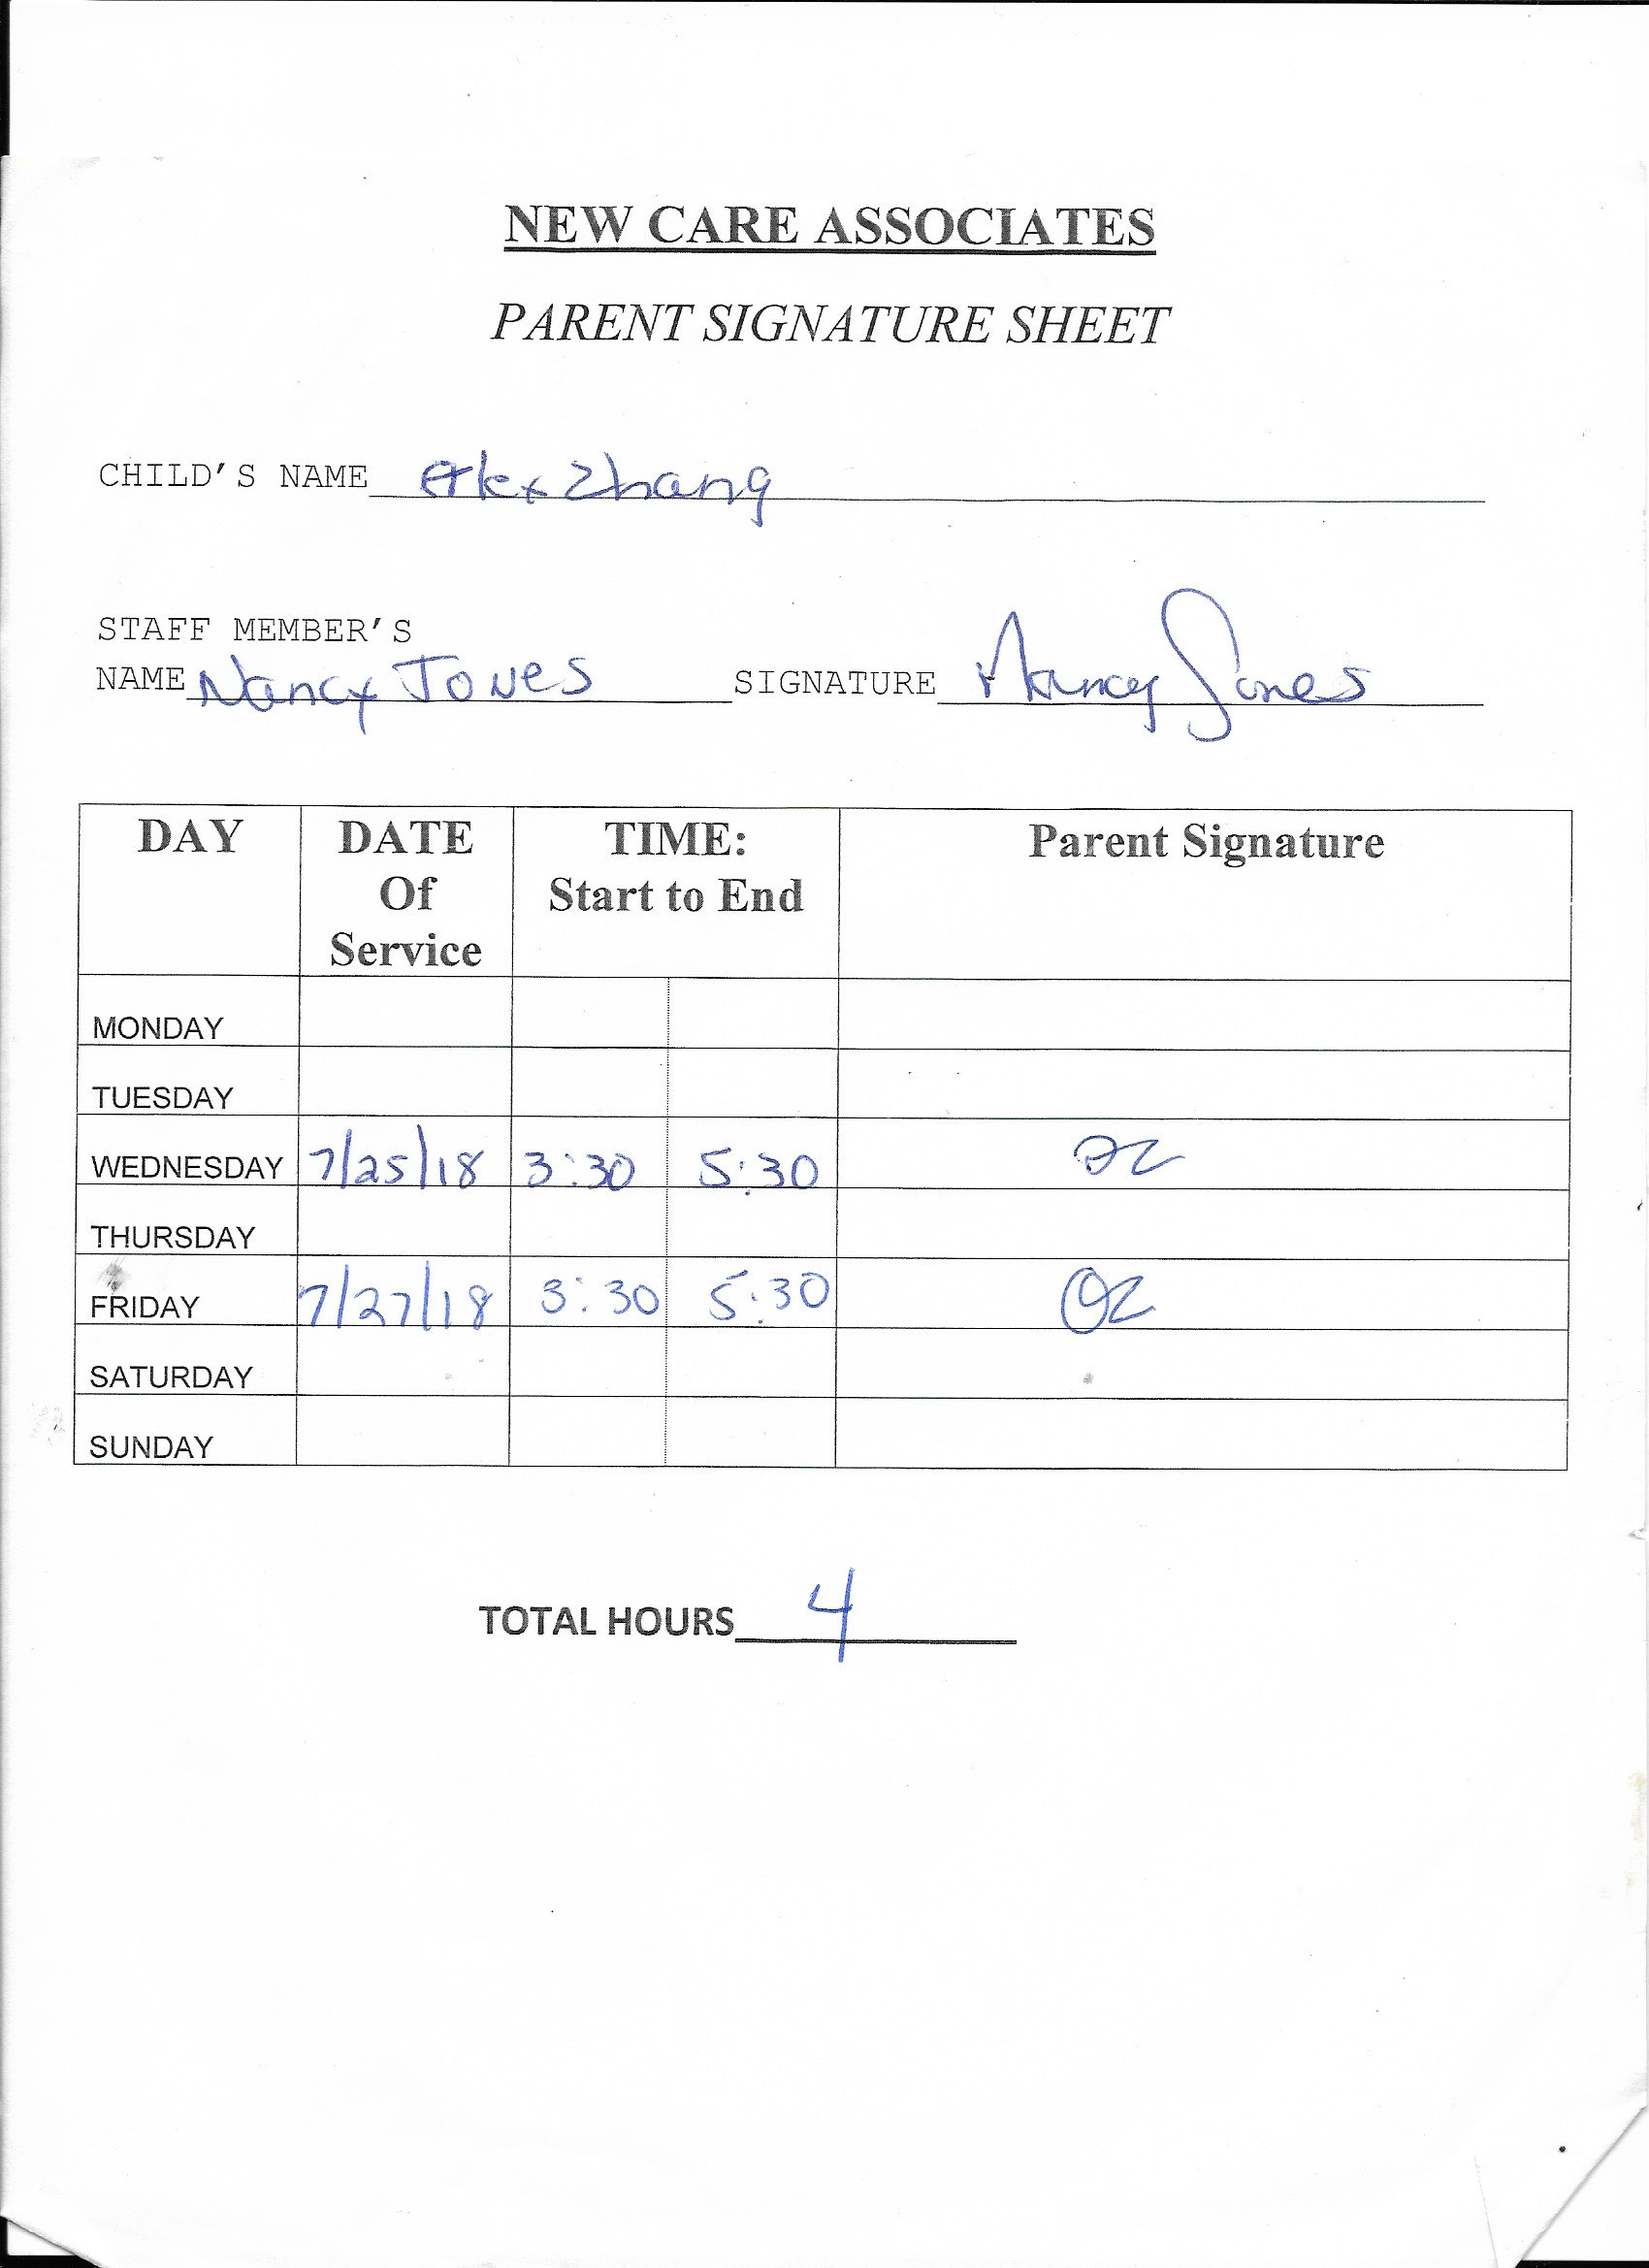 NEW CARE ASSOCIATES
PARENT SIGNATURE SHEET
CHILD'S NAME Alex Zhang
STAFF MEMBER'S
NAME Nancy Jones SIGNATURE Nancy Jones
DAY DATE Of Service TIME: Start to End Parent Signature
MONDAY
TUESDAY
WEDNESDAY 7/25/18 3:30 5:30
THURSDAY
FRIDAY 7/27/18 3:30 5:30
SATURDAY
SUNDAY
TOTAL HOURS 4